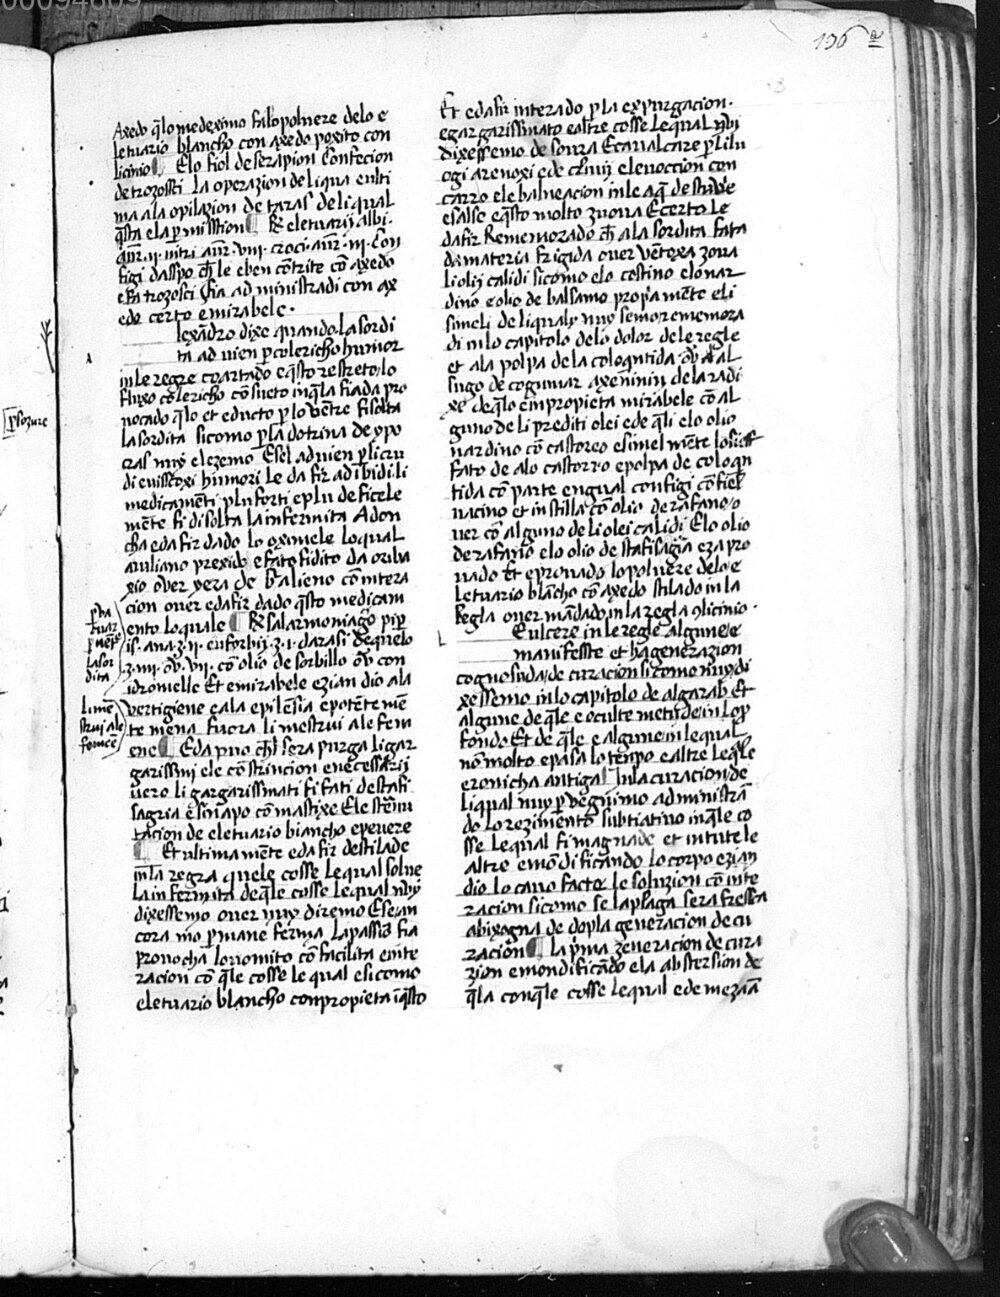 136 a
Axedo q̄lo medeximo fa lo polvere delo e
letuario blancho con axedo poxito con
licinio Elo fiol de serapion Confecion
de trozossci La operazion de li qua e ulti
ma ala opilazion de taras de li qual
q̄sta e la permisstion ℞ eletuarij albi.
aur. ij. nitri aur. viij. croci. aur. iij. Con
figi dasspo ch̄ le e ben cōtrite cō axedo
e fa trozosci e sia administradi con ax
edo certo e mirabele.
lexādro dixe quando la sordi
ta advien p colericho humor
in le regie coartado e q̄sto restreto lo
fluxo colericho cōsueto in q̄la fiada pro
vocado q̄lo et educto p lo vētre fi solta
la sordita sicomo p la dotrina de ypo
cras nuy elezemo E sel advien p li cru
di e vissoxi humori le da fir adibidi li
medicamēti plu forti e plu deficele
mēte fi disolta la infermita Adon
cha e da fir dado lo oximele lo qual
aiuliano prexido e fato fidito da oriba
xio over yera de Galieno cō intera
cion over e da fir dado q̄sto medicam
ento lo quale ℞ sal armoniago pip
is. ana. ʒ. ij. euforbij. ʒ. i. da rasi de q̄uelo
ʒ. iiij. ov̄. vii. cō olio de sorbillo ov̄ con
idromelle Et e mirabele ezian dio ala
vertigiene e ala epilēsia e potēte mē
te mena fuora li mestrui a le fem
ene E da puo ch̄ sera purga li gar
garissmi e le cōstrincion e necessarij
vero li gargarissmati fi fati de stafi
sagria e sinapo cō mastixe E le sternu
tacion de eletuario biancho e pevere
Et ultima mēte e da fir destilade
in la regia quele cosse le qual solve
la infermita de q̄le cosse le qual nuy
dixessemo over nuy diremo E se an
cora mo p̄mane ferma la passiō sia
provocha lo vomito cō facilita e inte
racion cō q̄le cosse le qual e si como
eletuario blancho con propieta i q̄sto
p̄sozure
p̄ta
p̄mēte
la sor
dita
Li mē
strui ale
femene
Et e da fir interado p la expurgacion.
e gargarissmato e altre cosse le qual nuy
dixessemo de soura E cavalcare p li lu
ogi arenoxi e de chivij e levoccion con
carro e le balneacion in le aq̄ de stuve
e salse e q̄sto molto zuova E certo le
da fir Rememorado ch̄ a la sordita fata
da materia frigida over vētoxa zova
li olij calidi sicomo elo costino elo nar
dino e olio de balsamo propia mēte e li
simeli de li qualy nuy semo rememora
di in lo capitolo delo dolor de le regle
et ala polpa de la coloq̄ntida ov̄ al
sugo de cogumar axeninii de la radi
xe de q̄lo e in propieta mirabele cō al
guno de li prediti olei e de q̄li e lo olio
nardino cō castoreo e simel mēte lo
fato de alo castorro e polpa de coloqn̄
tida cō parte engual configi cō fiel
vacino et in stilla cō olio de rafano o
ver cō alguno de li olei calidi E lo olio
de rafano e lo olio de stafisagia e za pro
vado Et e provado lo polvere delo e
letuario blācho cō axedo stilado in la
Regla over mādado in la regla cō licinio.
E ulcere in le regle alguna e
manifesste et ha generazion
cognosuda de curacion sicomo nuy di
xessemo in lo capitolo de algarab Et
algune de q̄le e oculte metude in lo p̄
fondo Et de q̄le e algune in le qual
nō molto e pasa lo tēnpo e altre le q̄le
e ronicha antiga In la curacion de
li qual nuy p̄ vegnimo administrā
do lo rezimento subtiativo in q̄le co
sse le qual fi magnade et in tute le
altre e mōdificando lo corpo ezian
dio lo cavo facte le soluzion cō inte
racion sicomo se la plaga sera fressca
abixogna de dopla generacion de cu
racion La p̄ma zeneracion de cura
zion e mondificādo e la abstersion de
q̄la con q̄le cosse le qual e de mezāa